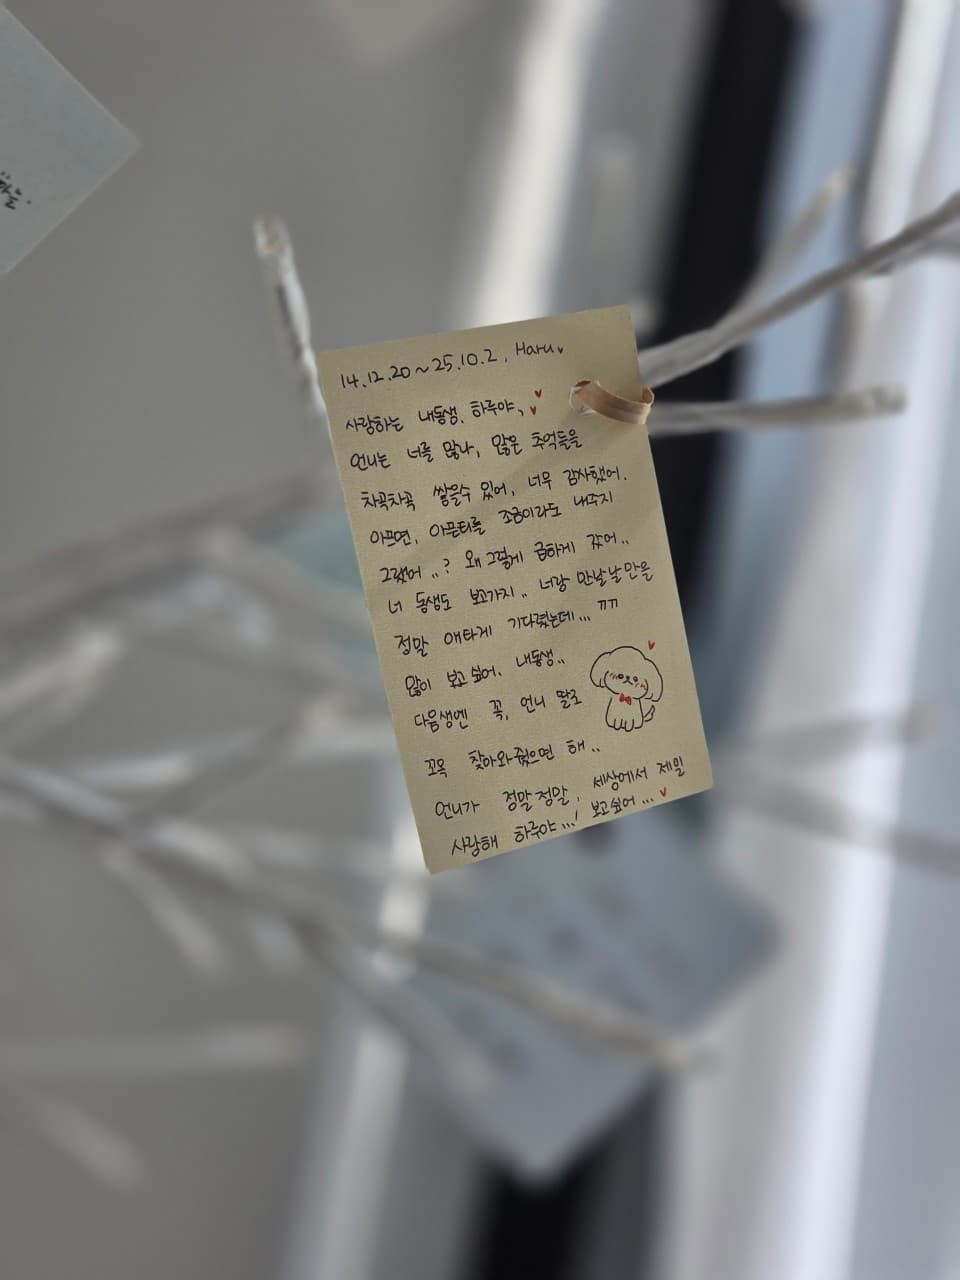 14.12.20~25.10.2. Haru♥
사랑하는 내동생, 하루야, ♥♥
언니는 너를 만나, 많은 추억들을
차곡차곡 쌓을수 있어, 너무 감사했어.
아프면, 아픈티를 조금이라도 내주지
그랬어..? 왜 그렇게 급하게 갔어..
너 동생도 보고가지.. 너랑 만날날만을
정말 애타게 기다렸는데... ㄲㄲ
많이 보고 싶어. 내동생..
다음생엔 꼭, 언니 딸로
꼬옥 찾아와줬으면 해..
언니가 정말정말, 세상에서 제일
사랑해 하루야...! 보고싶어... ♥